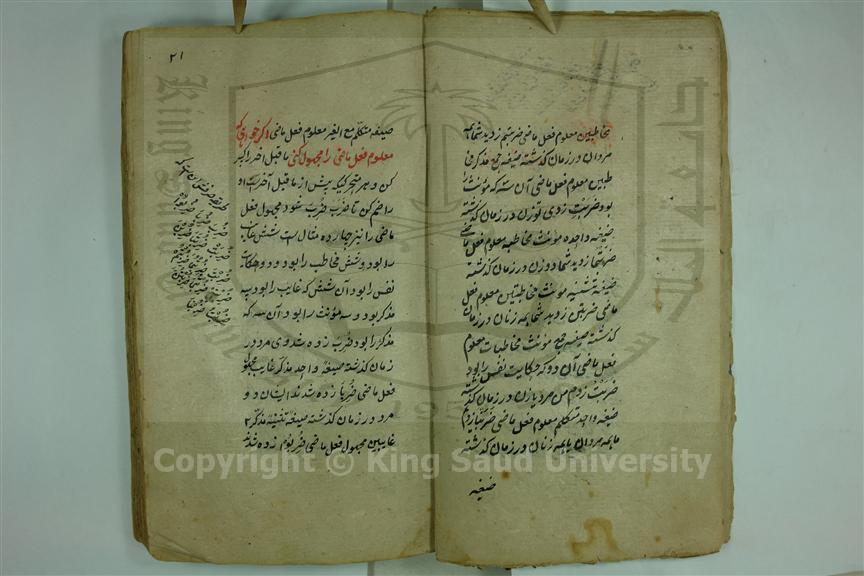 مخاطبین معلوم فعل ماضی ضربتم زدید شما همه
مردان در زمان کذشته صیغه جمع مذکر مخا
طبین معلوم فعل ماضی آن سه که مؤنث را
بود ضربت زدی تو زن در زمان کذشته
صیغه واحده مؤنث مخاطبه معلوم فعل ماضی
ضربتما زدید شما دو زن در زمان کذشته
صیغه تثنیه مؤنث مخاطبتین معلوم فعل
ماضی ضربتن زدید شما همه زنان در زمان
کذشته صیغه جمع مؤنث مخاطبات معلوم
فعل ماضی آن دو که حکایت نفس را بود
ضربت زدم من مرد یا زن در زمان کذشته
صیغه واحد متکلم معلوم فعل ماضی ضربنا زدیم
ما همه مردان یا همه زنان در زمان کذشته
صیغه
۲۱
صیغه متکلم مع الغیر معلوم فعل ماضی اکر خواهی که
معلوم فعل ماضی را مجهول کنی ما قبل اخر را کسر
کن و هر متحرکیکه پیش از ما قبل آخرست او
را ضم کن تا ضرب ضرب شود مجهول فعل
ماضی را نیز چهارده مثال است شش غایب
را بود و شش مخاطب را بود و دو حکایت
نفس را بود آن شش که غایب را بود سه
مذکر بود و سه مؤنث را بود آن سه که
مذکر را بود ضرب زده شد وی مرد در
زمان کذشته صیغه واحد مذکر غایب مجهول
فعل ماضی ضربا زده شدند ایشان دو
مرد در زمان کذشته صیغه تثنیه مذکر
غایبین مجهول فعل ماضی ضربوا زده شدند
Copyright © King Saud University